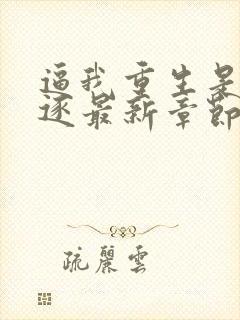 逼我重生是
逐最新章節
疏麗雲